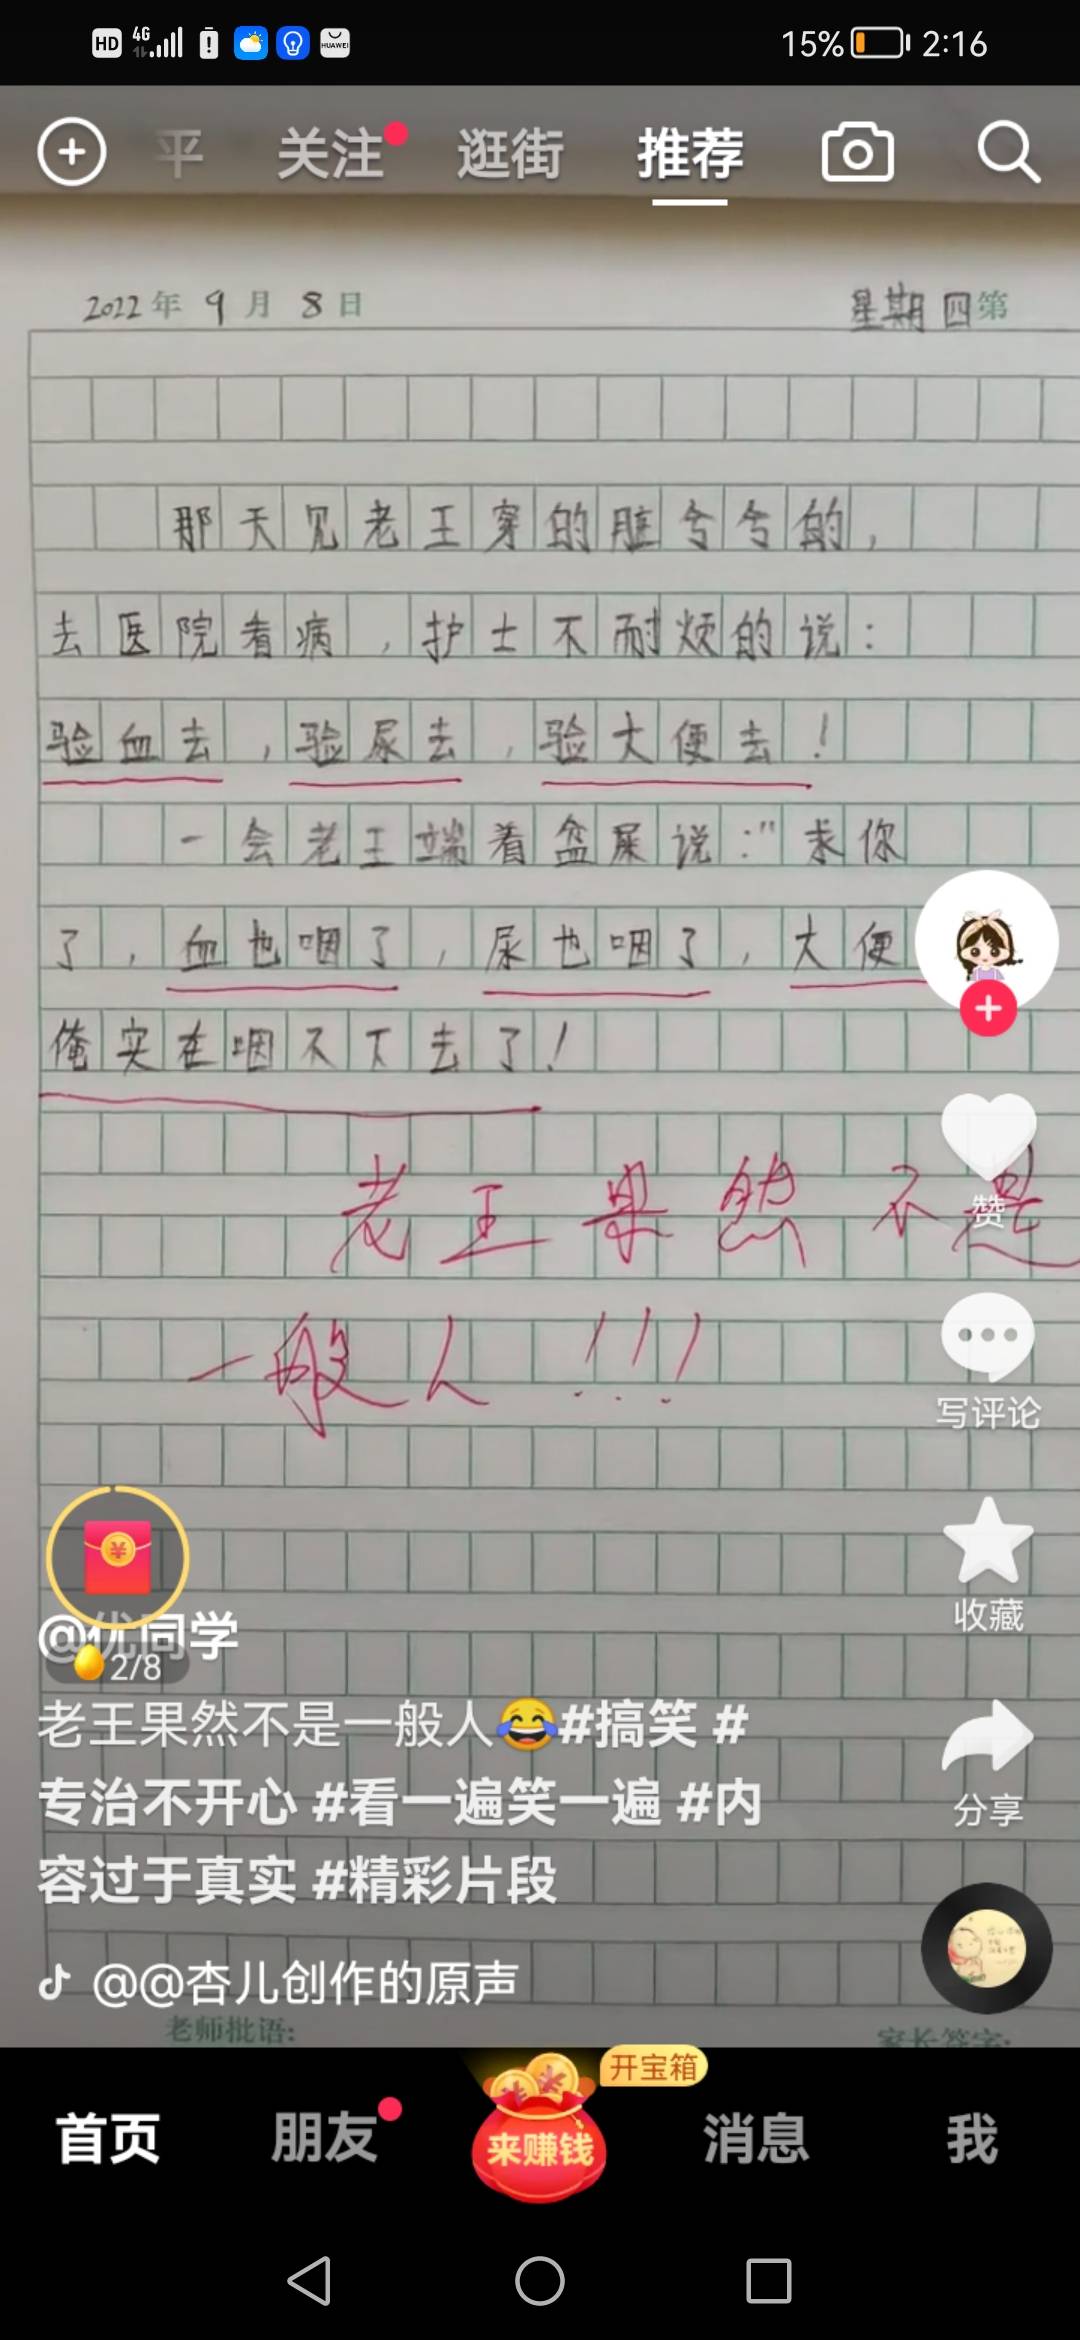 HD 4G HUAWEI 15% 2:16
平 关注 逛街 推荐
2022年9月8日 星期四第
那天见老王穿的脏兮兮的，
去医院看病，护士不耐烦的说：
验血去，验尿去，验大便去！
一会老王端着盆屎说："求你
了，血也咽了，尿也咽了，大便
俺实在咽不下去了！
老王果然不是
一般人！！！
赞
写评论
收藏
分享
@优同学
2/8
老王果然不是一般人😂#搞笑 #
专治不开心 #看一遍笑一遍 #内
容过于真实 #精彩片段
@@杏儿创作的原声
老师批语: 家长签字:
开宝箱
首页 朋友 来赚钱 消息 我